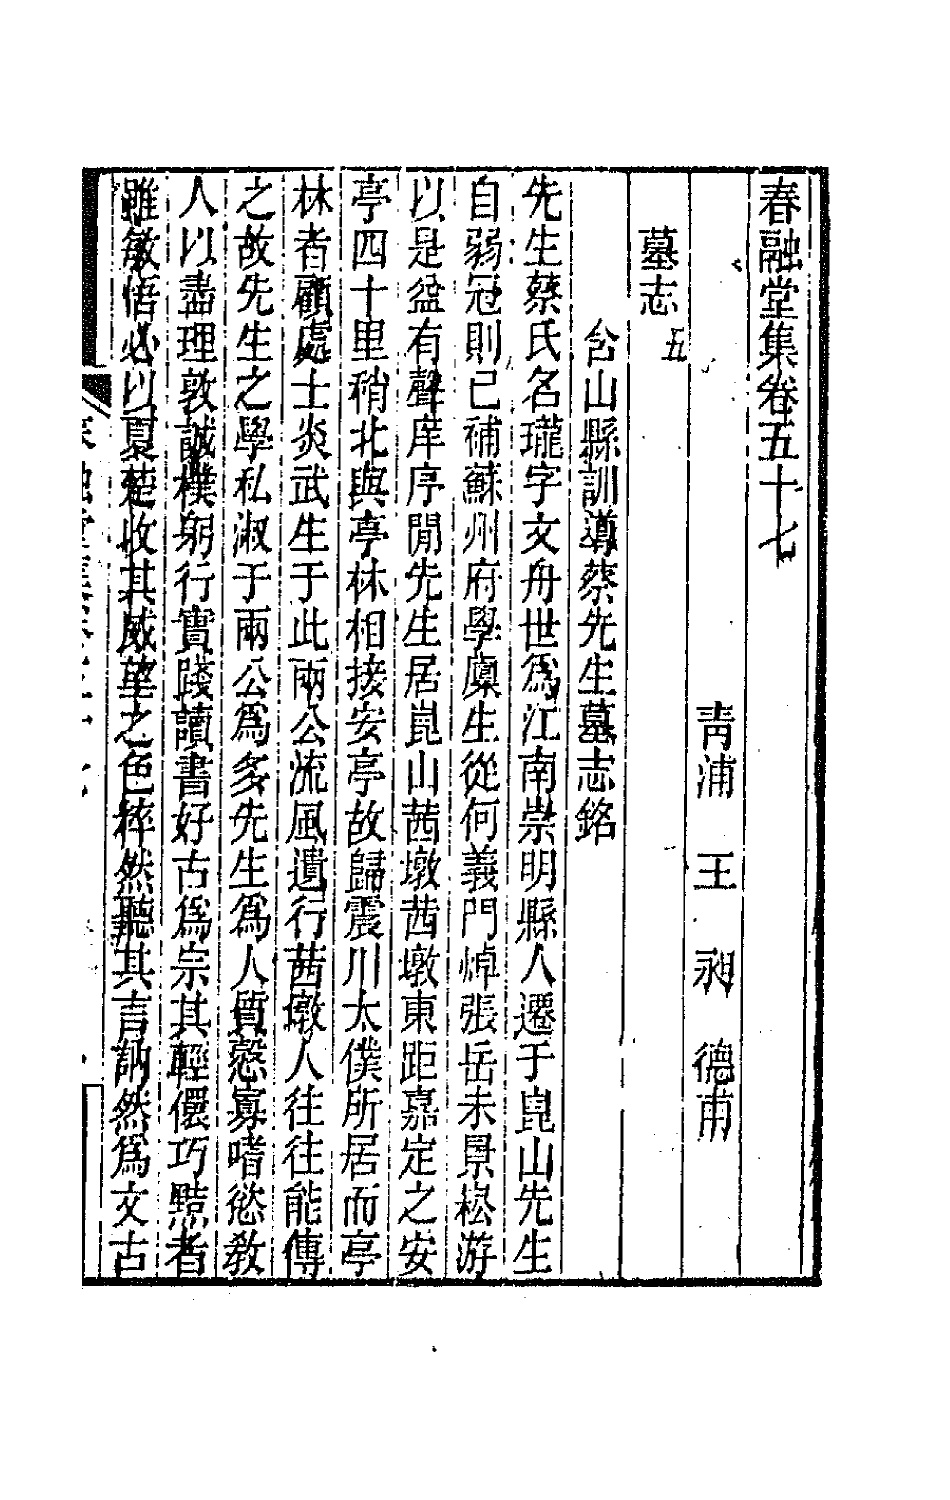 春融堂集卷五十七
青浦 王 昶 德甫
墓志 五
含山縣訓導蔡先生墓志銘
先生蔡氏名瓏字文舟世爲江南崇明縣人遷于崑山先生
自弱冠則已補蘇州府學廩生從何義門焯張岳未景崧游
以是益有聲庠序閒先生居崑山茜墩茜墩東距嘉定之安
亭四十里稍北與亭林相接安亭故歸震川太僕所居而亭
林者顧處士炎武生于此兩公流風遺行茜墩人往往能傳
之故先生之學私淑于兩公爲多先生爲人質慤寡嗜慾敎
人以盡理敦誠樸躬行實踐讀書好古爲宗其輕儇巧黠者
雖敏悟必以夏楚收其威望之色粹然聽其言訥然爲文古